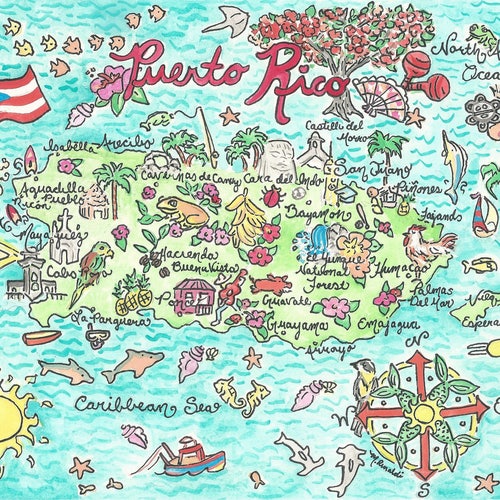 Puerto Rico
North
Ocean
Castillo del
Morro
Isabella
Arecibo
Cavernas de Camuy
Cara del Indo
San Juan
Piñones
Aguadilla
Pueblo
Bayamon
Fajardo
Mayagüez
Hacienda
Buena Vista
El Yunque
National
Forest
Humacao
Cabo
Palmas
Del Mar
Guavate
La Parguera
Guayama
Emajagua
Arroyo
Caribbean Sea
N
W
E
S